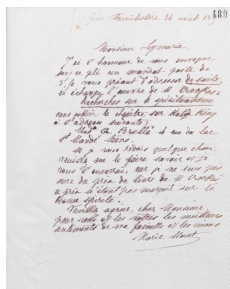 489
Monsieur Leymarie
J'ai l'honneur de vous envoyer
sous ce pli un mandat poste de
je vous priant d'adresser de suite,
en échange, l'œuvre de W. Crookes
recherches sur le spiritualisme
le chapitre sur Katie King
à l'adresse suivante:
rue du lac
St Mandé Seine.
Si je vous redois quelque chose,
veuillez me le faire savoir et je
vous l'enverrai, car je ne suis pas
sûre du prix du livre de W. Crookes
ce prix n'étant pas marqué sur la
Revue spirite.
Veuillez agréer, cher Monsieur,
pour vous et les vôtres les meilleurs
sentiments de ma famille et les miens
Marie Moret